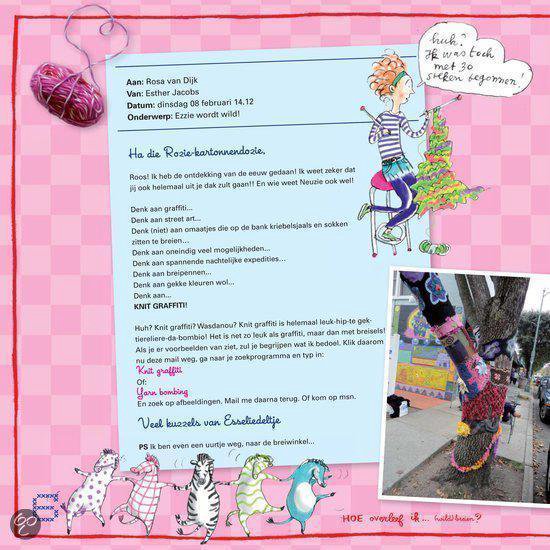 huh?
Ik was toch
met 30
steken begonnen!
Aan: Rosa van Dijk
Van: Esther Jacobs
Datum: dinsdag 08 februari 14.12
Onderwerp: Ezzie wordt wild!
Ha die Rozie-kartonnendozie,
Roos! Ik heb de ontdekking van de eeuw gedaan! Ik weet zeker dat
jij ook helemaal uit je dak zult gaan!! En wie weet Neuzie ook wel!
Denk aan graffiti...
Denk aan street art...
Denk (niet) aan omaatjes die op de bank kriebelsjaals en sokken
zitten te breien...
Denk aan oneindig veel mogelijkheden...
Denk aan spannende nachtelijke expedities...
Denk aan breipennen...
Denk aan gekke kleuren wol...
Denk aan...
KNIT GRAFFITI!
Huh? Knit graffiti? Wasdanou? Knit graffiti is helemaal leuk-hip-te gek-
tiereliere-da-bombio! Het is net zo leuk als graffiti, maar dan met breisels!
Als je er voorbeelden van ziet, zul je begrijpen wat ik bedoel. Klik daarom
nu deze mail weg, ga naar je zoekprogramma en typ in:
Knit graffiti
Of:
Yarn bombing
En zoek op afbeeldingen. Mail me daarna terug. Of kom op msn.
Veel kuzzels van Esseliedeltje
PS Ik ben even een uurtje weg, naar de breiwinkel...
8
HOE overleef ik... (wild) breien?